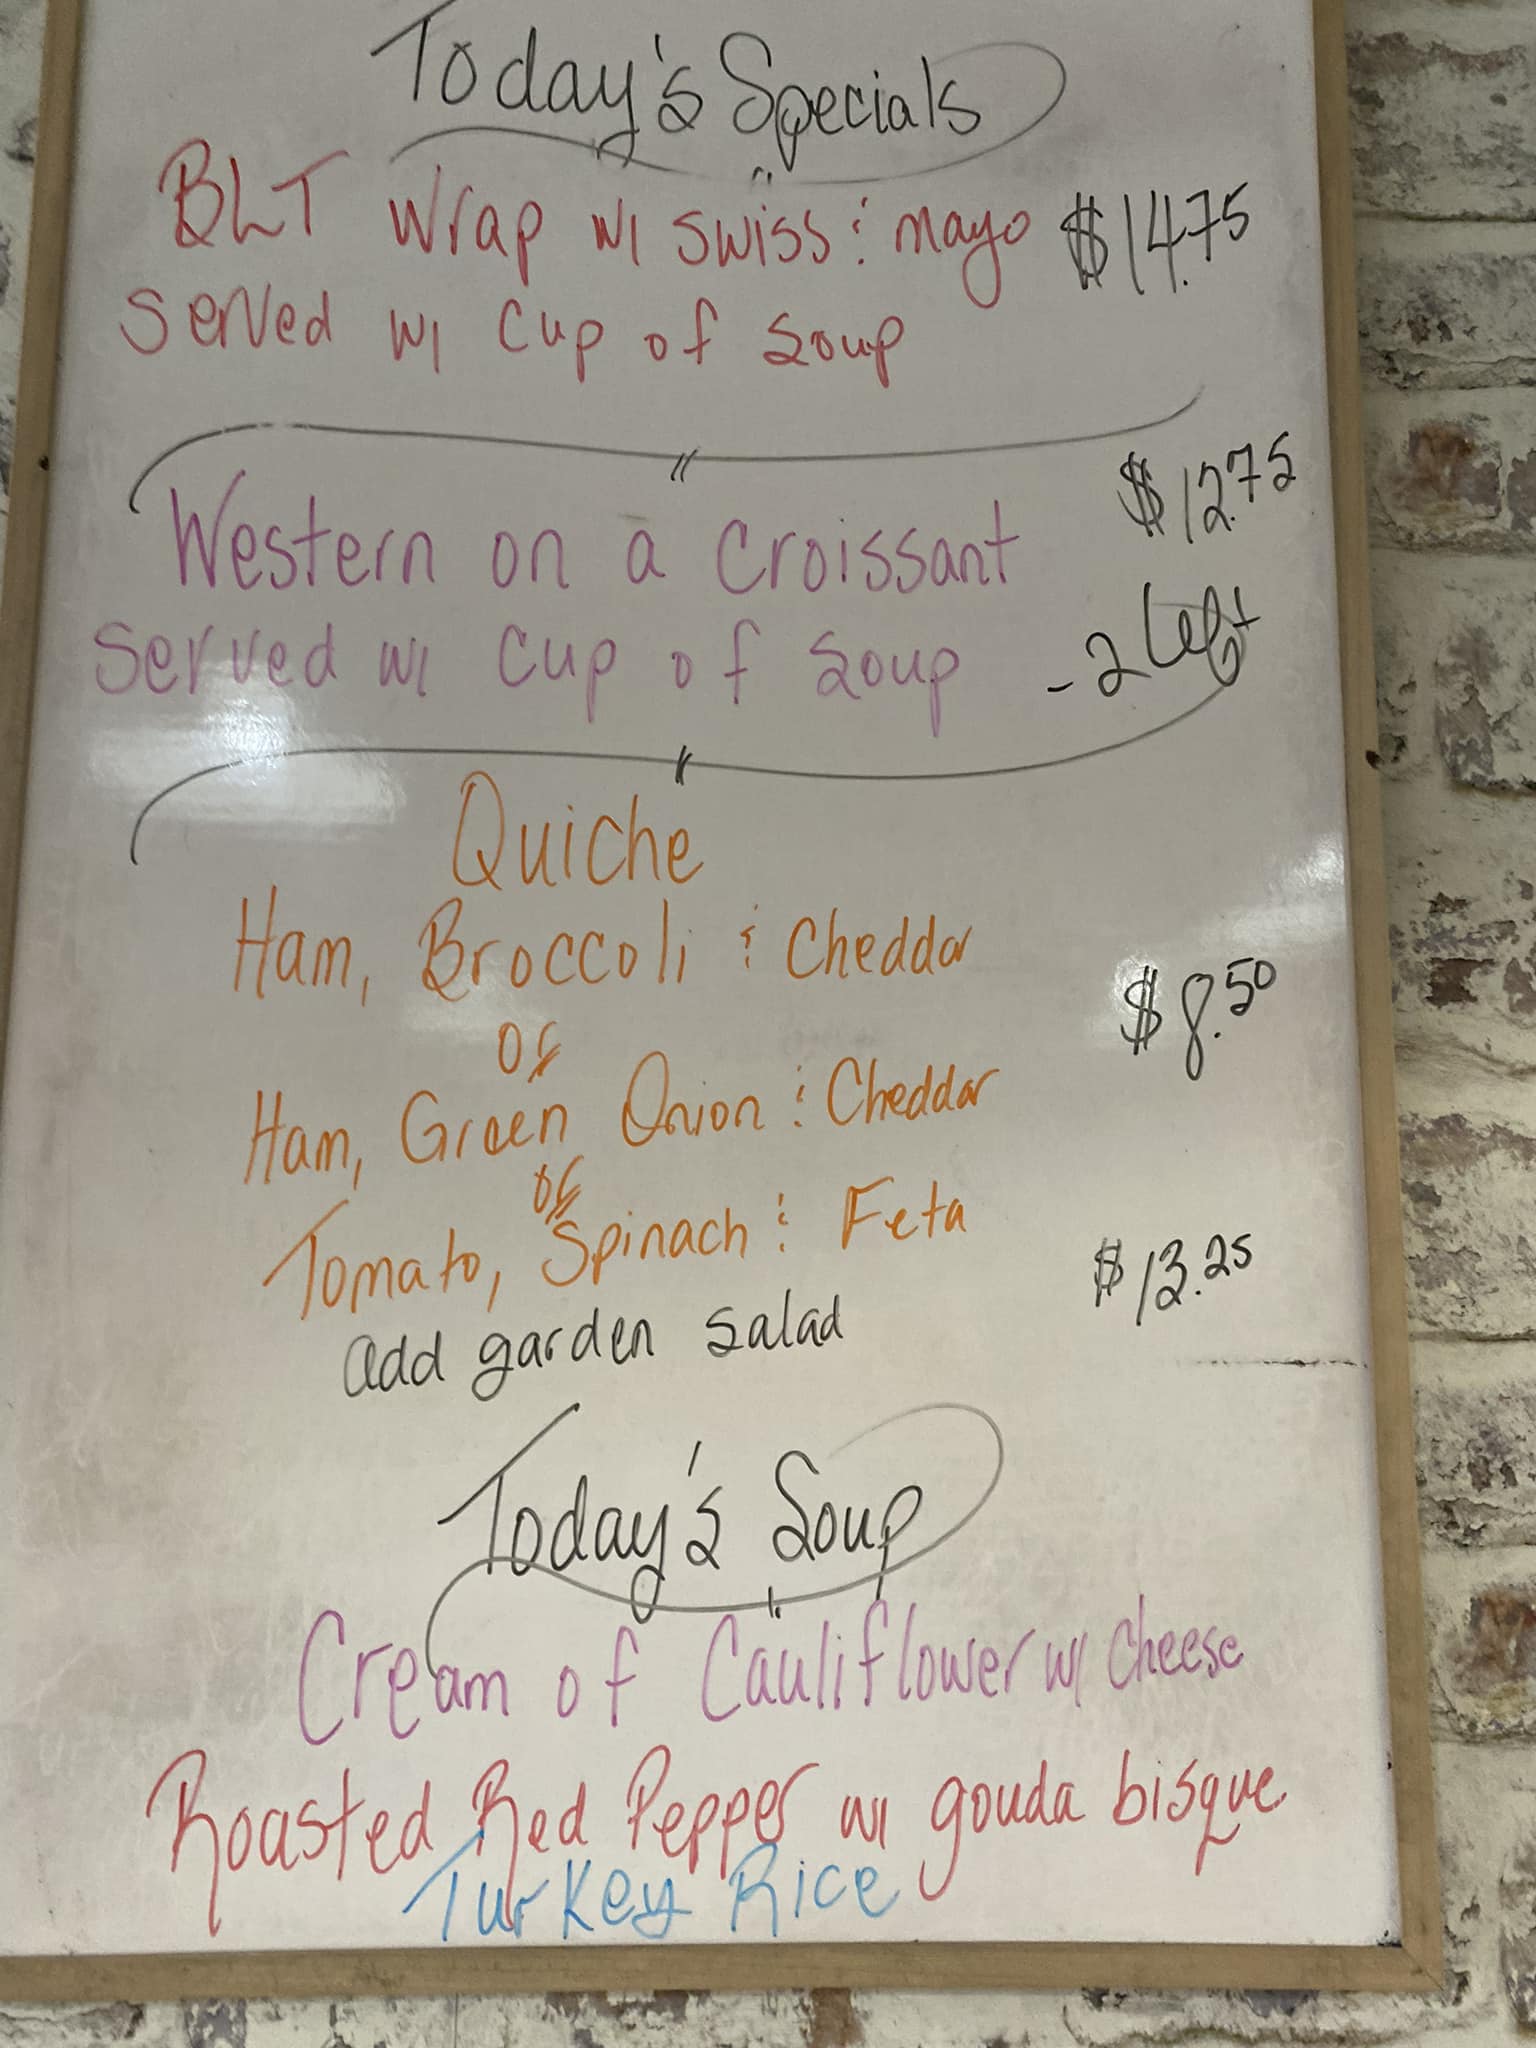 Today's Specials
BLT Wrap w/ Swiss & mayo $14.75
Served w/ Cup of Soup
Western on a Croissant $12.75
Served w/ Cup of Soup - 2 left
Quiche
Ham, Broccoli & Cheddar
$8.50
or
Ham, Green Onion & Cheddar
or
Tomato, Spinach & Feta
add garden salad $13.25
Today's Soup
Cream of Cauliflower w/ cheese
Roasted Red Pepper w/ gouda bisque
Turkey Rice